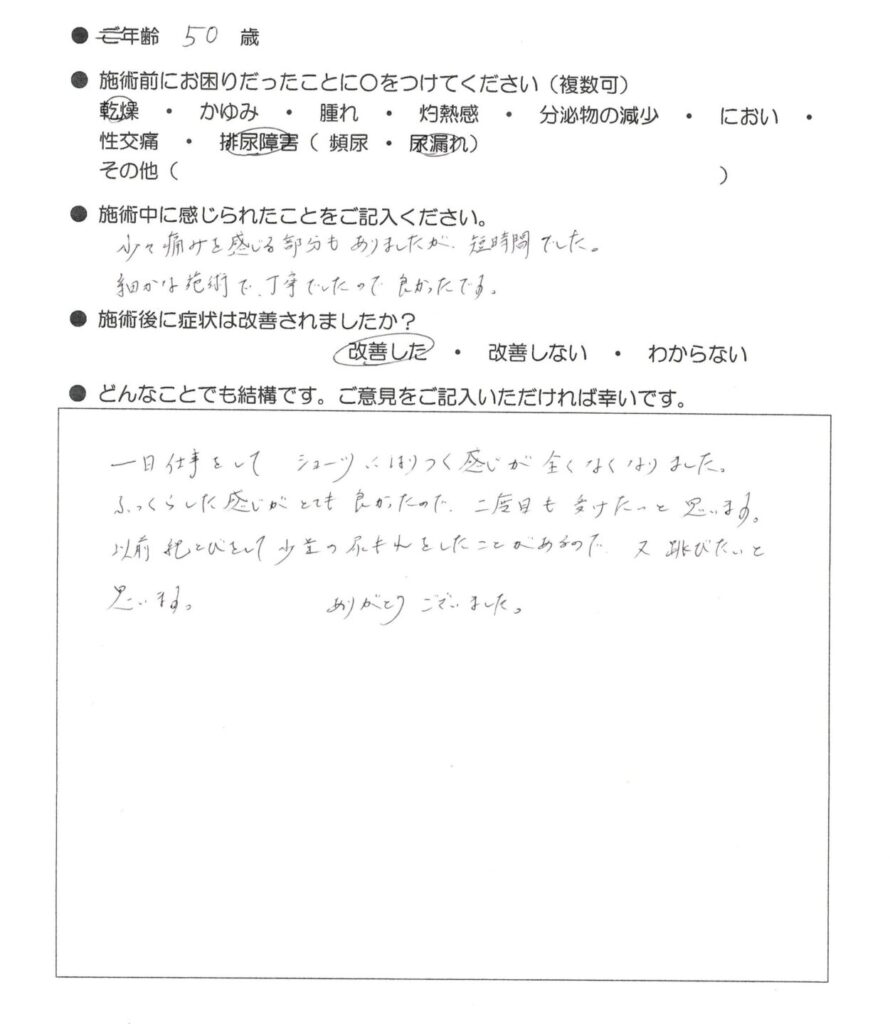 ● ご年齢 50 歳
● 施術前にお困りだったことに○をつけてください（複数可）
乾燥 ・ かゆみ ・ 腫れ ・ 灼熱感 ・ 分泌物の減少 ・ におい ・
性交痛 ・ 排尿障害（ 頻尿 ・ 尿漏れ）
その他（ ）
● 施術中に感じられたことをご記入ください。
少々痛みを感じる部分もありましたが、短時間でした。
細かな施術で、丁寧でしたので良かったです。
● 施術後に症状は改善されましたか？
改善した ・ 改善しない ・ わからない
● どんなことでも結構です。ご意見をご記入いただければ幸いです。
一日仕事をして ショーツにはりつく感じが全くなくなりました。
ふっくらした感じがとても良かったので、二度目も受けたいと思います。
以前縄とびをして少量の尿もれをしたことがあるので 又跳びたいと
思います。 ありがとうございました。